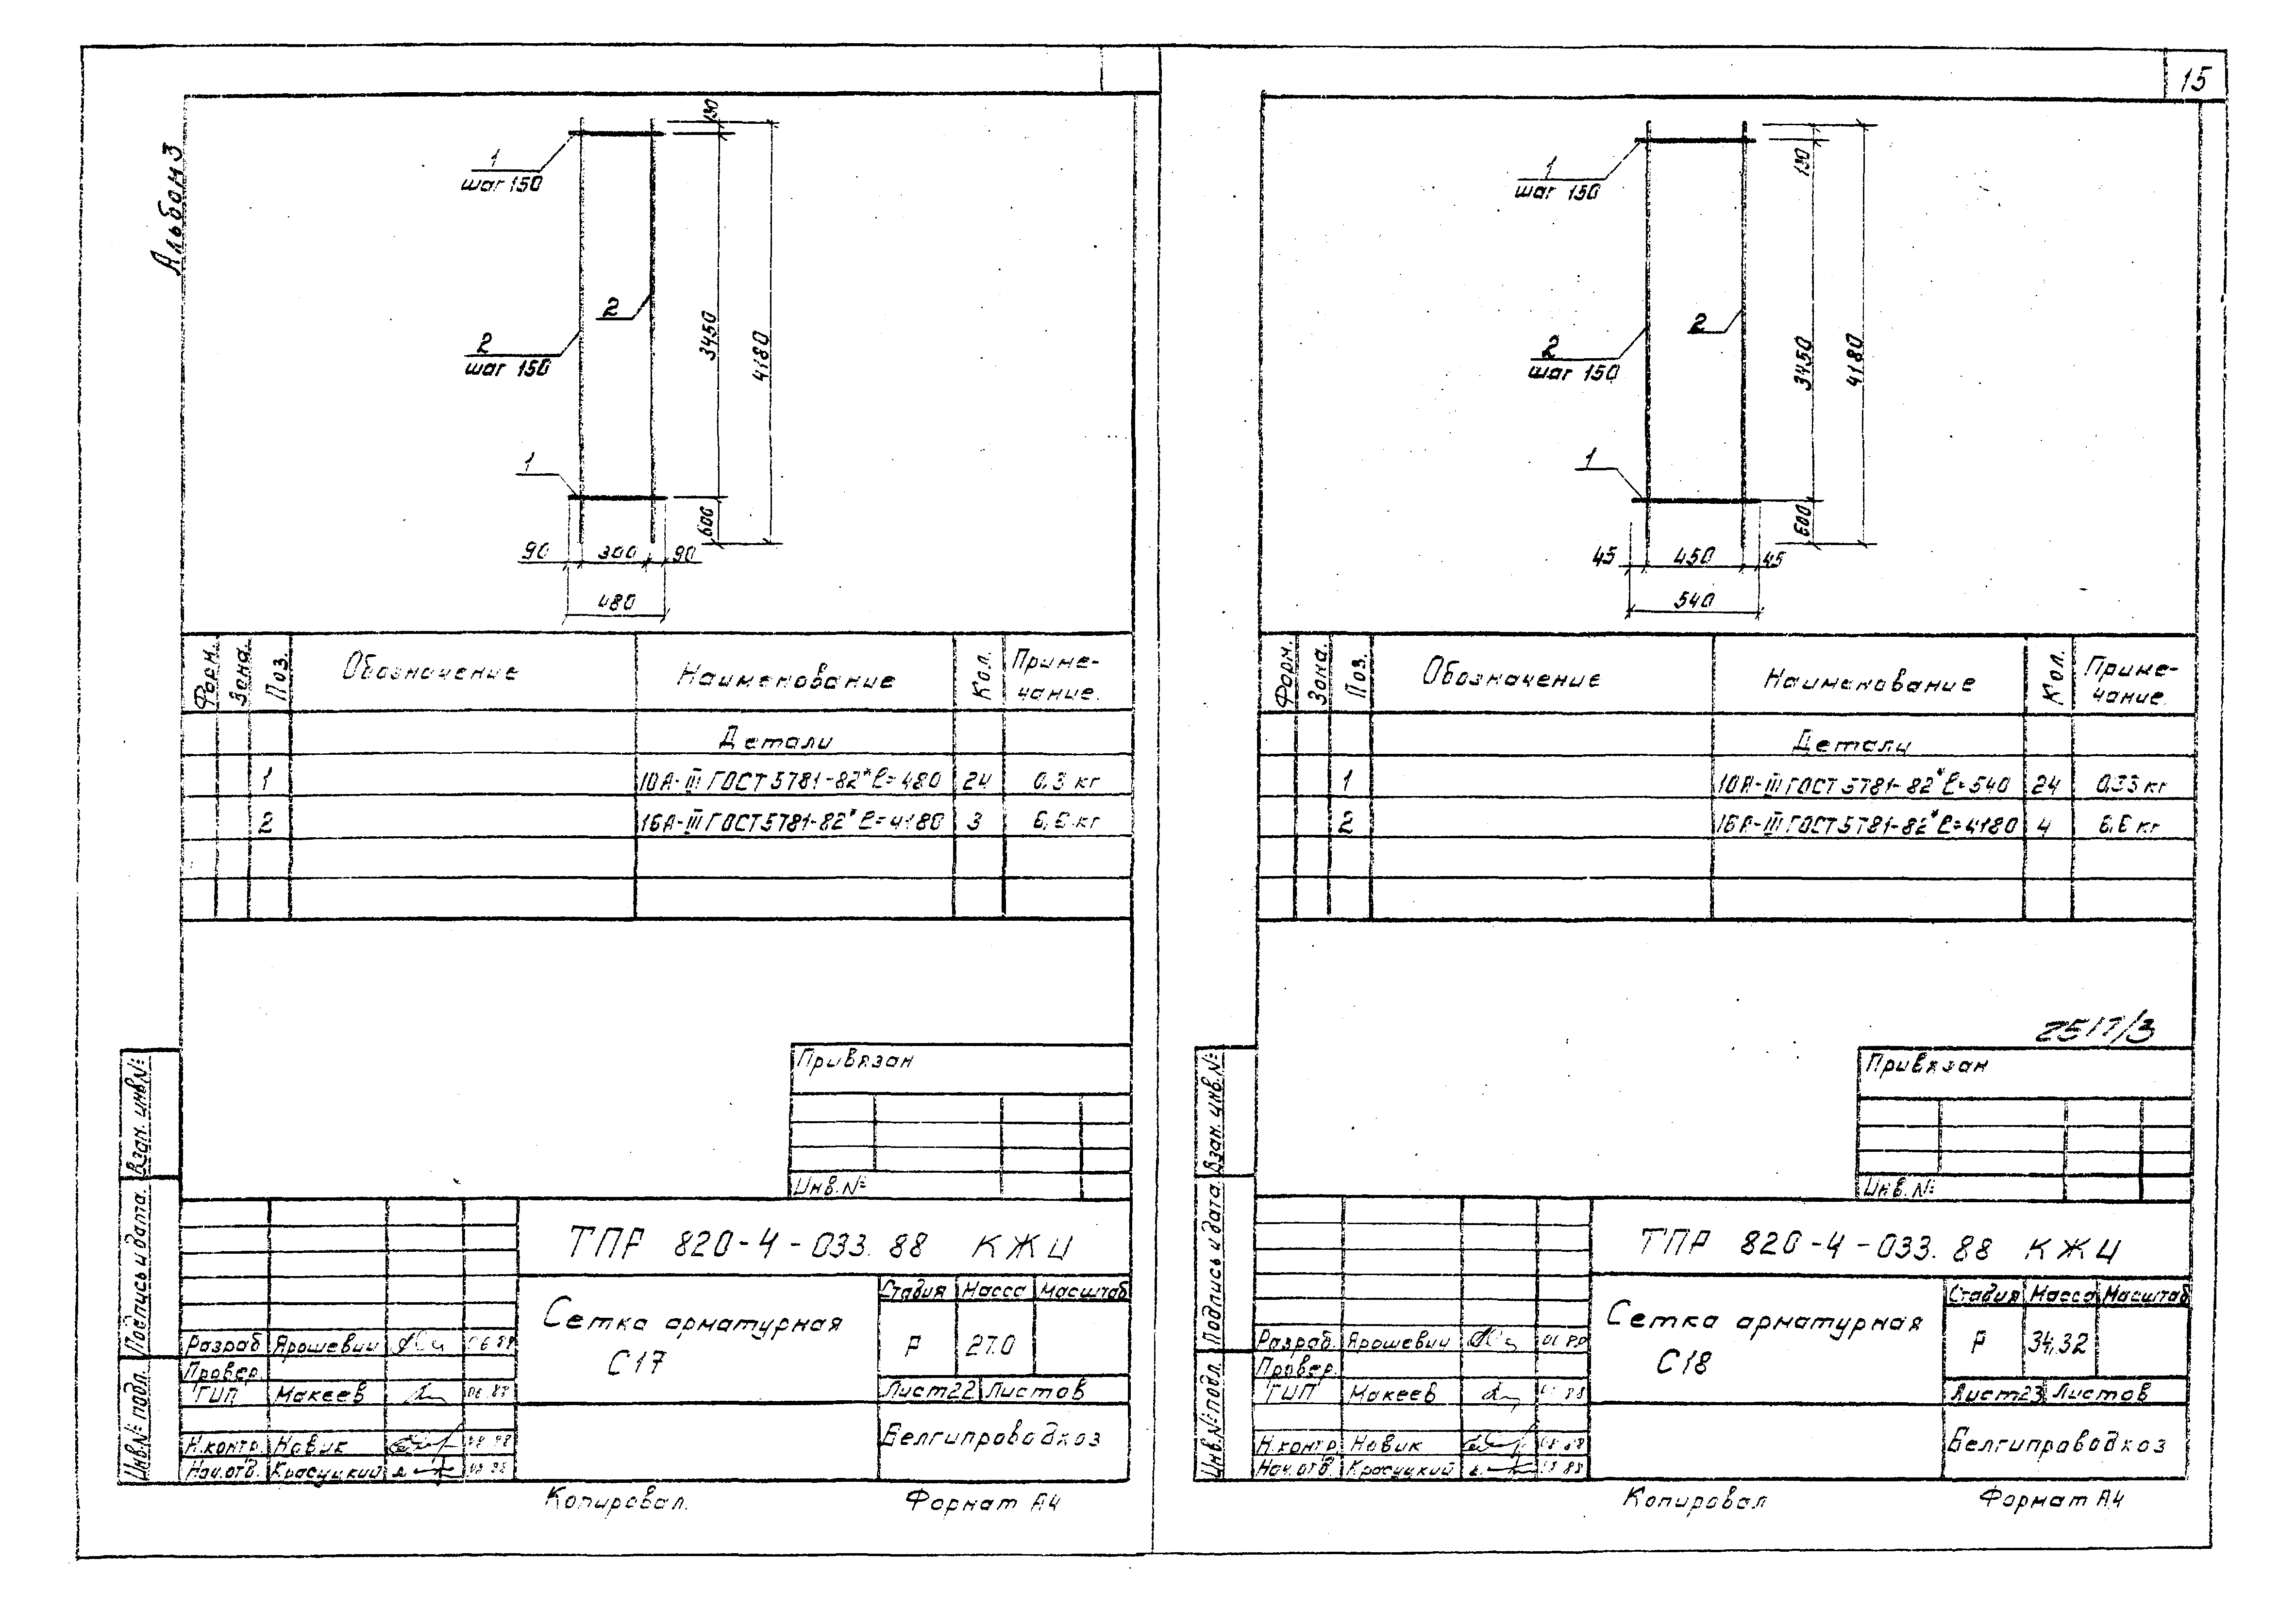 15
Альбом 3
1
шаг 150
2
2
шаг 150
1
130
3450
4180
600
90 300 90
480
Форм. Зона. Поз. Обозначение Наименование Кол. Приме-
чание.
Детали
1 10А-III ГОСТ 5781-82* ℓ=480 24 0,3 кг
2 16А-III ГОСТ 5781-82* ℓ=4180 3 6,6 кг
Привязан
Инв.№
Взам. инв.№
Подпись и дата.
Инв.№ подл.
ТПР 820-4-033.88 КЖИ
Сетка арматурная
С17
Стадия Масса Масштаб
Р 27.0
Лист 22 Листов
Белгипроводхоз
Разраб Ярошевич
Провер.
ГИП Макеев
Н.контр. Новик
Нач.отд. Красуцкий
Копировал. Формат А4
1
шаг 150
2
2
шаг 150
1
130
3450
4180
600
45 450 45
540
Форм. Зона. Поз. Обозначение Наименование Кол. Приме-
чание.
Детали
1 10А-III ГОСТ 5781-82* ℓ=540 24 0,33 кг
2 16А-III ГОСТ 5781-82* ℓ=4180 4 6,6 кг
2517/3
Привязан
Инв.№
Взам. инв.№
Подпись и дата.
Инв.№ подл.
ТПР 820-4-033.88 КЖИ
Сетка арматурная
С18
Стадия Масса Масштаб
Р 34,32
Лист 23 Листов
Белгипроводхоз
Разраб. Ярошевич
Провер.
ГИП Макеев
Н.контр Новик
Нач.отд. Красуцкий
Копировал Формат А4